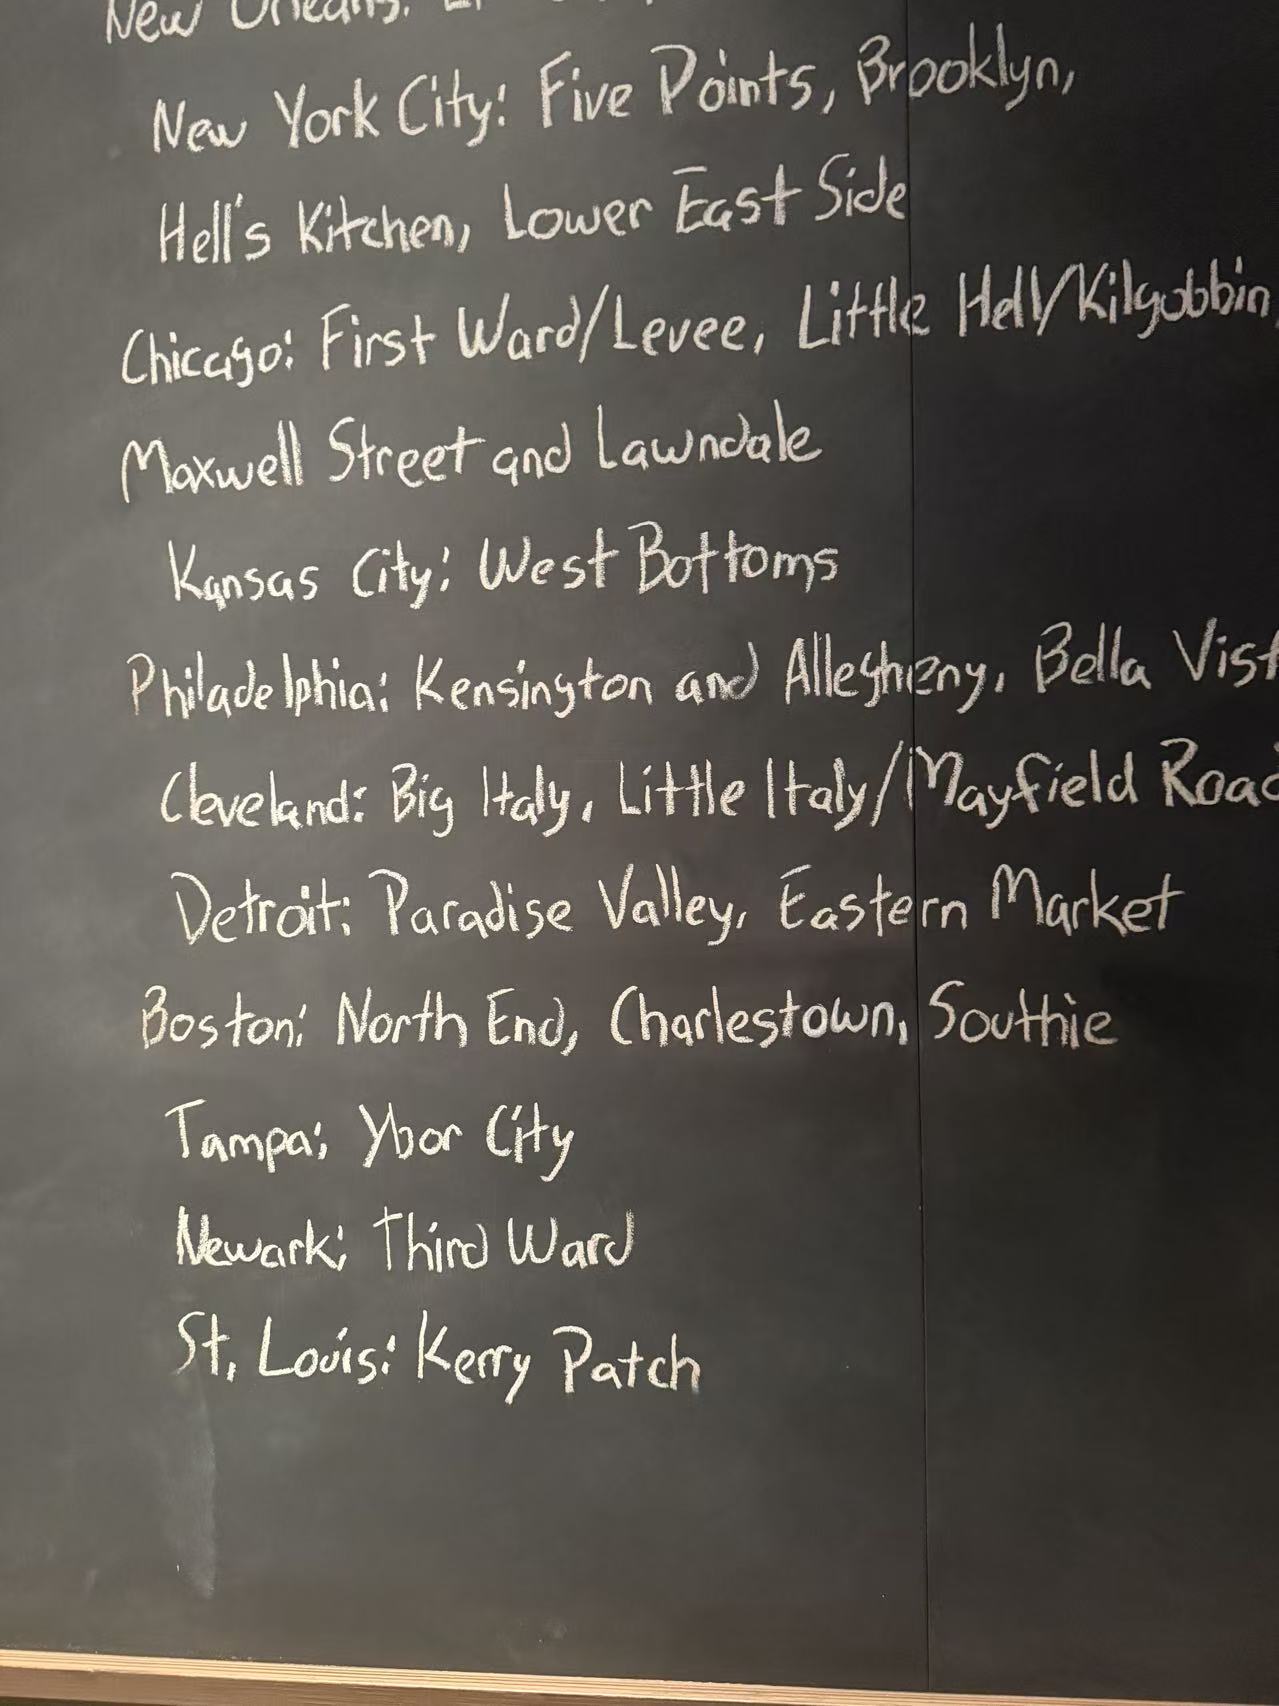 New Orleans:
New York City: Five Points, Brooklyn,
Hell's Kitchen, Lower East Side
Chicago: First Ward/Levee, Little Hell/Kilgubbin,
Maxwell Street and Lawndale
Kansas City: West Bottoms
Philadelphia: Kensington and Allegheny, Bella Vist
Cleveland: Big Italy, Little Italy/Mayfield Road
Detroit: Paradise Valley, Eastern Market
Boston: North End, Charlestown, Southie
Tampa: Ybor City
Newark: Third Ward
St. Louis: Kerry Patch